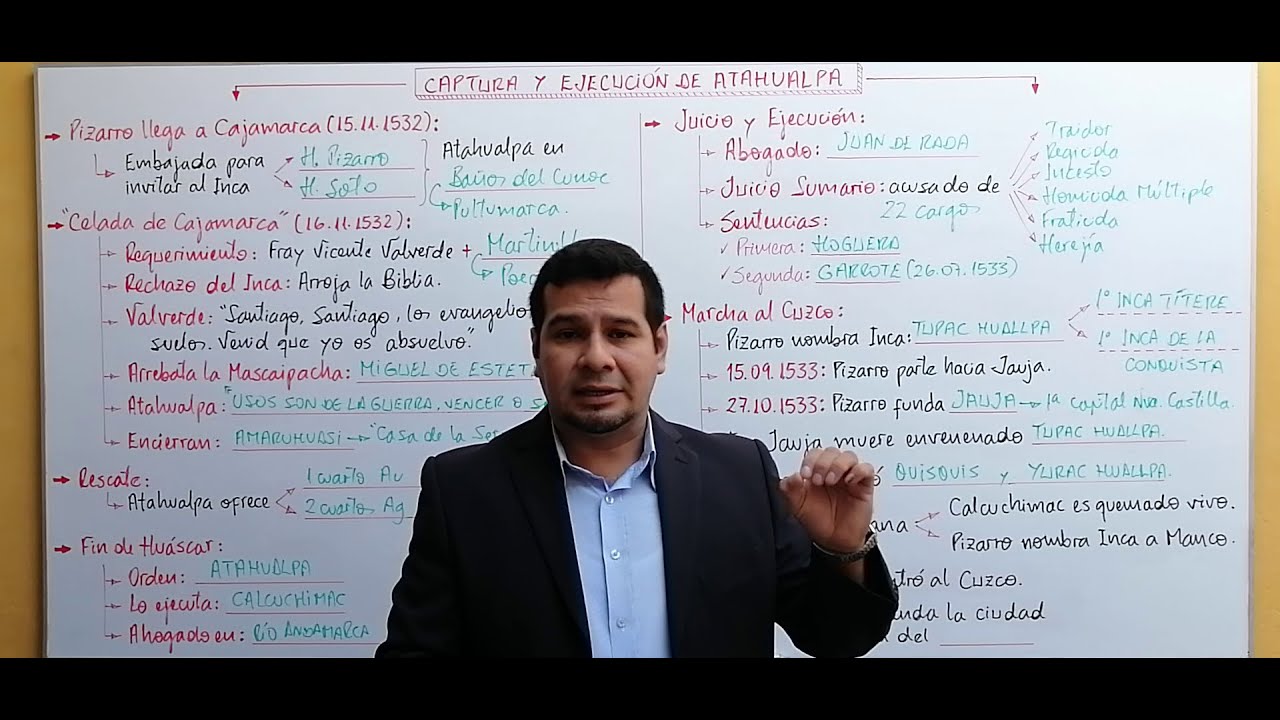 CAPTURA Y EJECUCIÓN DE ATAHUALPA
Pizarro llega a Cajamarca (15.11.1532):
Embajada para
invitar al Inca
H. Pizarro
H. Soto
Atahualpa en
Baños del Cunoc
Pultumarca.
"Celada de Cajamarca" (16.11.1532):
Requerimiento: Fray Vicente Valverde +
Rechazo del Inca: Arroja la Biblia.
Valverde: "Santiago, Santiago, los
suelos. Venid que yo os absuelvo".
Arrebata la Mascaipacha: MIGUEL DE
Atahualpa: "USOS SON DE LA GUERRA, VENCER O
Encierran: AMARUHUASI "Casa de la
Rescate:
Atahualpa ofrece
1 cuarto Au
2 cuartos Ag
Fin de Huáscar:
Orden: ATAHUALPA
Lo ejecuta: CALCUCHIMAC
Ahogado en: RÍO ANDAMARCA
Juicio y Ejecución:
Abogado: JUAN DE RADA
Juicio Sumario: acusado de
22 cargos
Traidor
Regicida
Incesto
Homicida Múltiple
Fraticida
Herejía
Sentencias:
Primera: HOGUERA
Segunda: GARROTE (26.07.1533)
Marcha al Cuzco:
Pizarro nombra Inca: TUPAC HUALLPA
1° INCA TÍTERE
1° INCA DE LA
CONQUISTA
15.09.1533: Pizarro parte hacia Jauja.
27.10.1533: Pizarro funda JAUJA 1ª capital nva. Castilla.
Jauja muere envenenado TUPAC HUALLPA.
QUISQUIS y YURAC HUALLPA.
Calcuchimac es quemado vivo.
Pizarro nombra Inca a Manco.
al Cuzco.
la ciudad
del